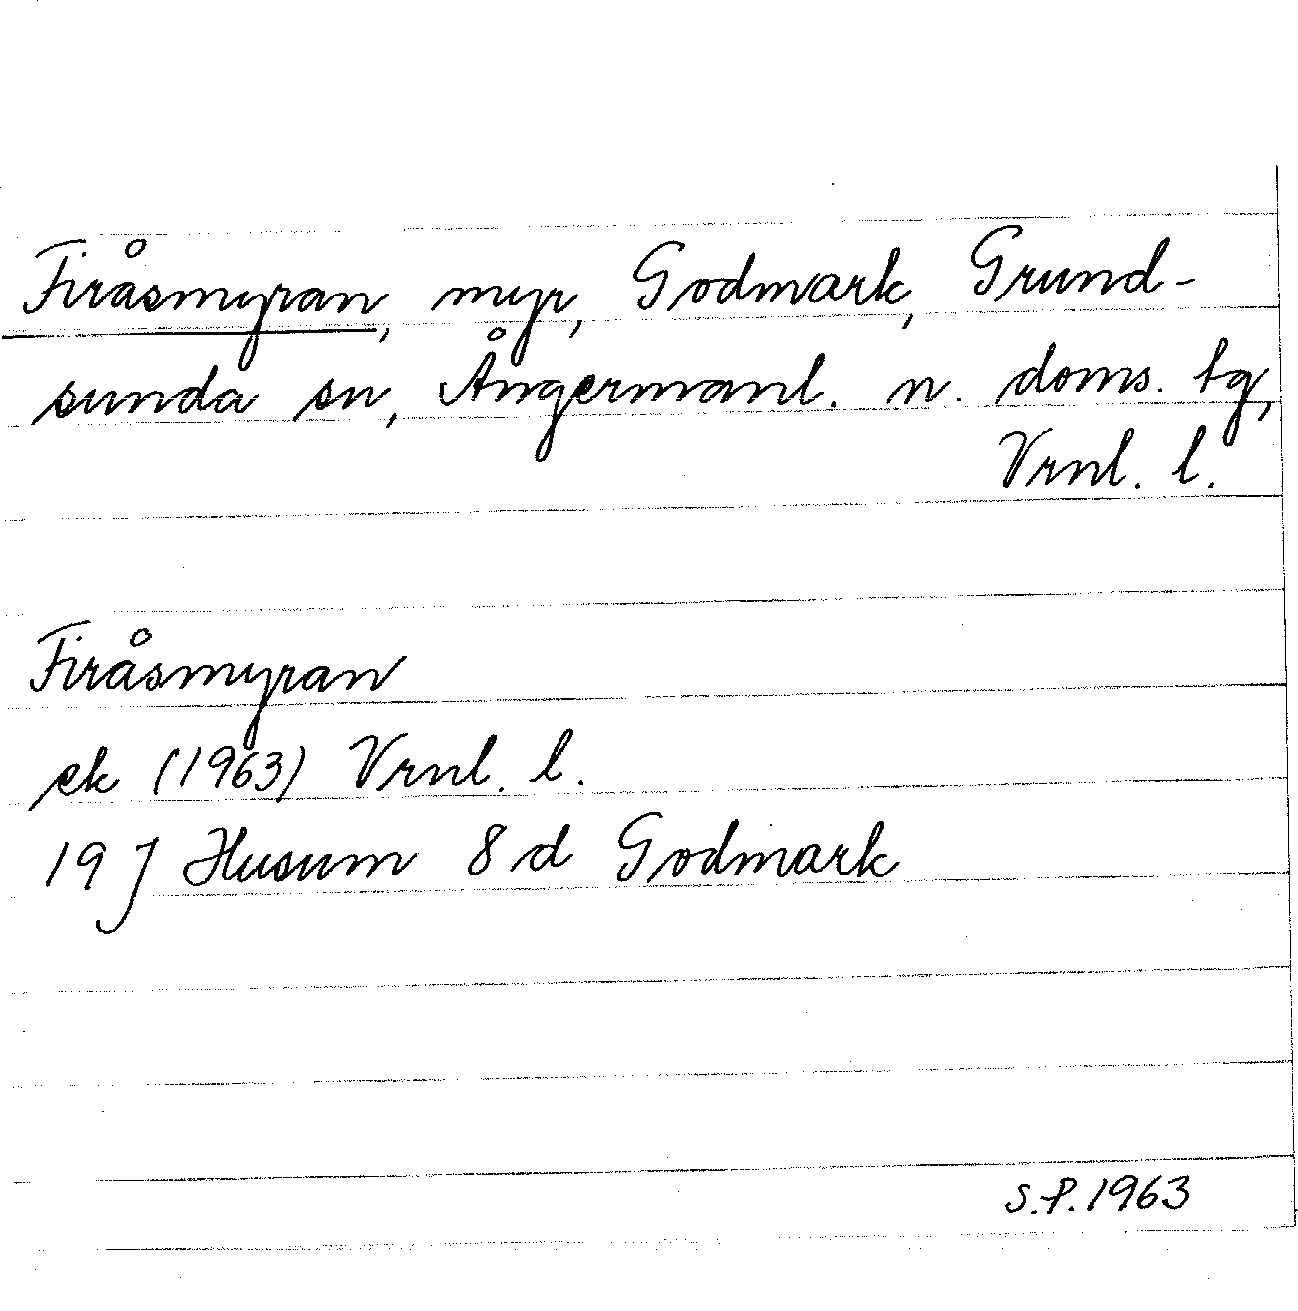 Firåsmyran, myr, Godmark, Grund-
sunda sn, Ångermanl. n. doms. tg,
Vrnl. l.
Firåsmyran
ek (1963) Vrnl. l.
19 J Husum 8 d Godmark
S.P. 1963